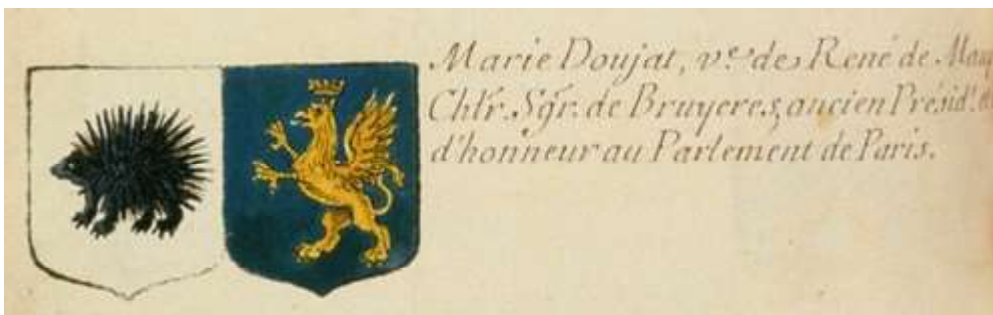 Marie Doujat, v.e de René de
Chlr. Sgr. de Bruyeres, ancien Présid.t
d'honneur au Parlement de Paris.